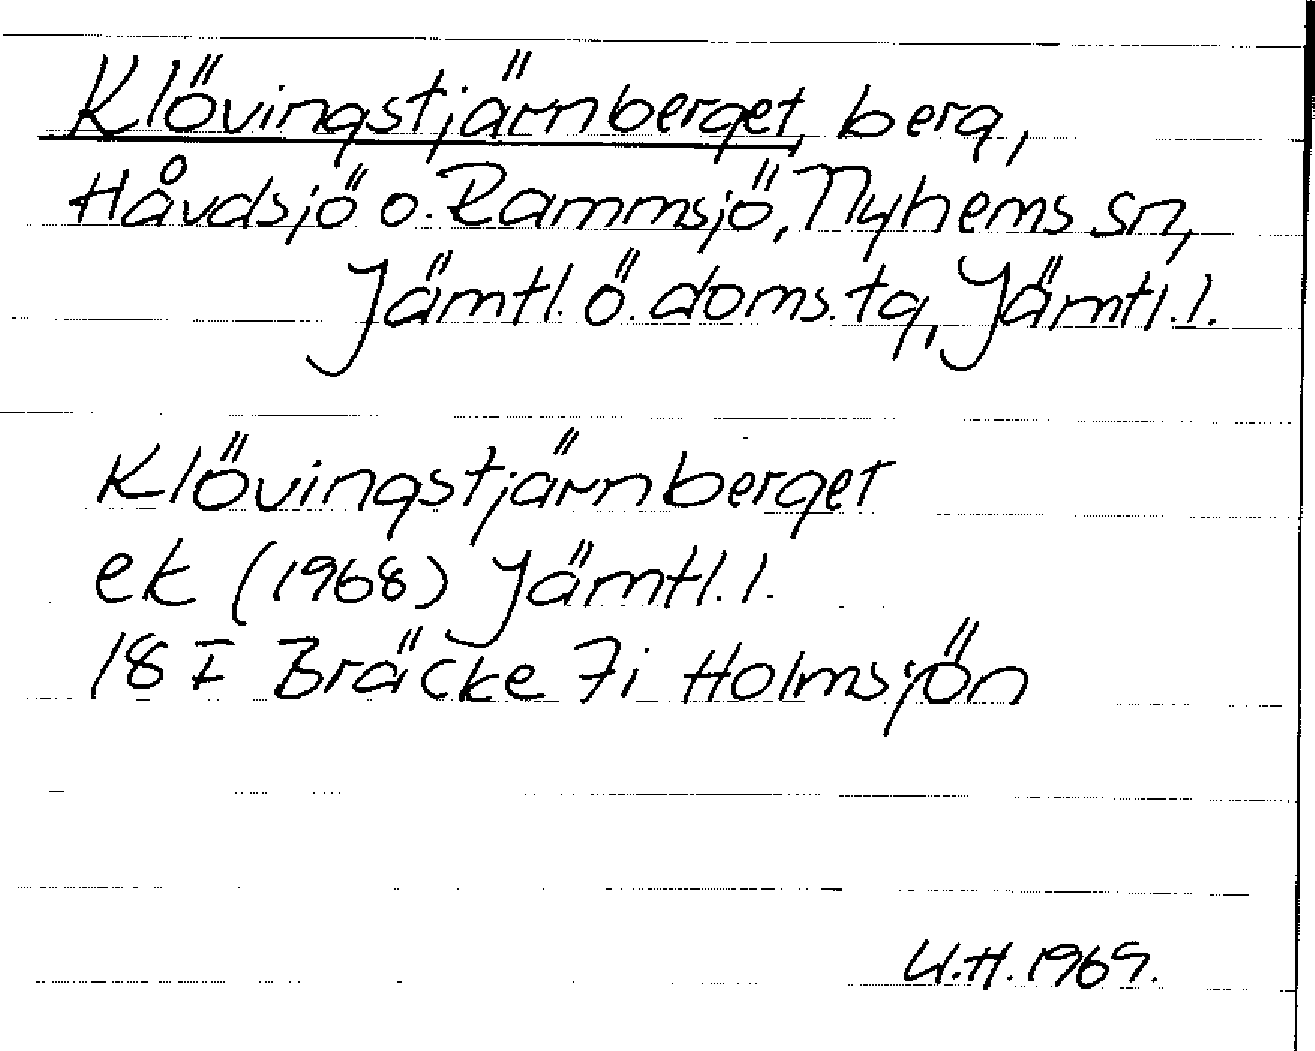 Klövingstjärnberget, berg,
Håvdsjö o. Rammsjö, Nyhems sn,
Jämtl. ö. doms. tg, Jämtl. l.
Klövingstjärnberget
ek (1968) Jämtl. l.
18 F Bräcke 7i Holmsjön
U.H. 1969.